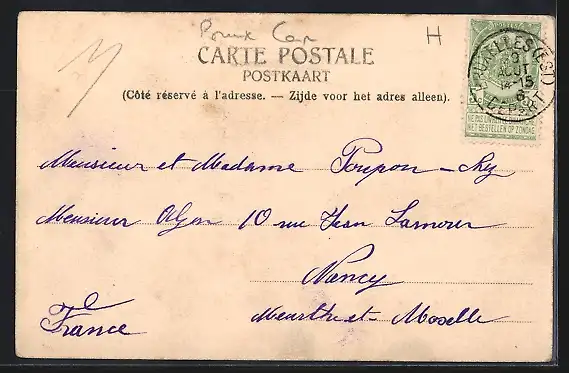 H
CARTE POSTALE
POSTKAART
(Côté réservé à l'adresse. — Zijde voor het adres alleen).
BRUXELLES (EST)
AOUT
14-15
DEPART
NE PAS LIVRER LE DIMANCHE
NIET BESTELLEN OP ZONDAG
Monsieur et Madame Poupon-
Monsieur 10 rue Jean Lamour
Nancy
Meurthe et-Moselle
France